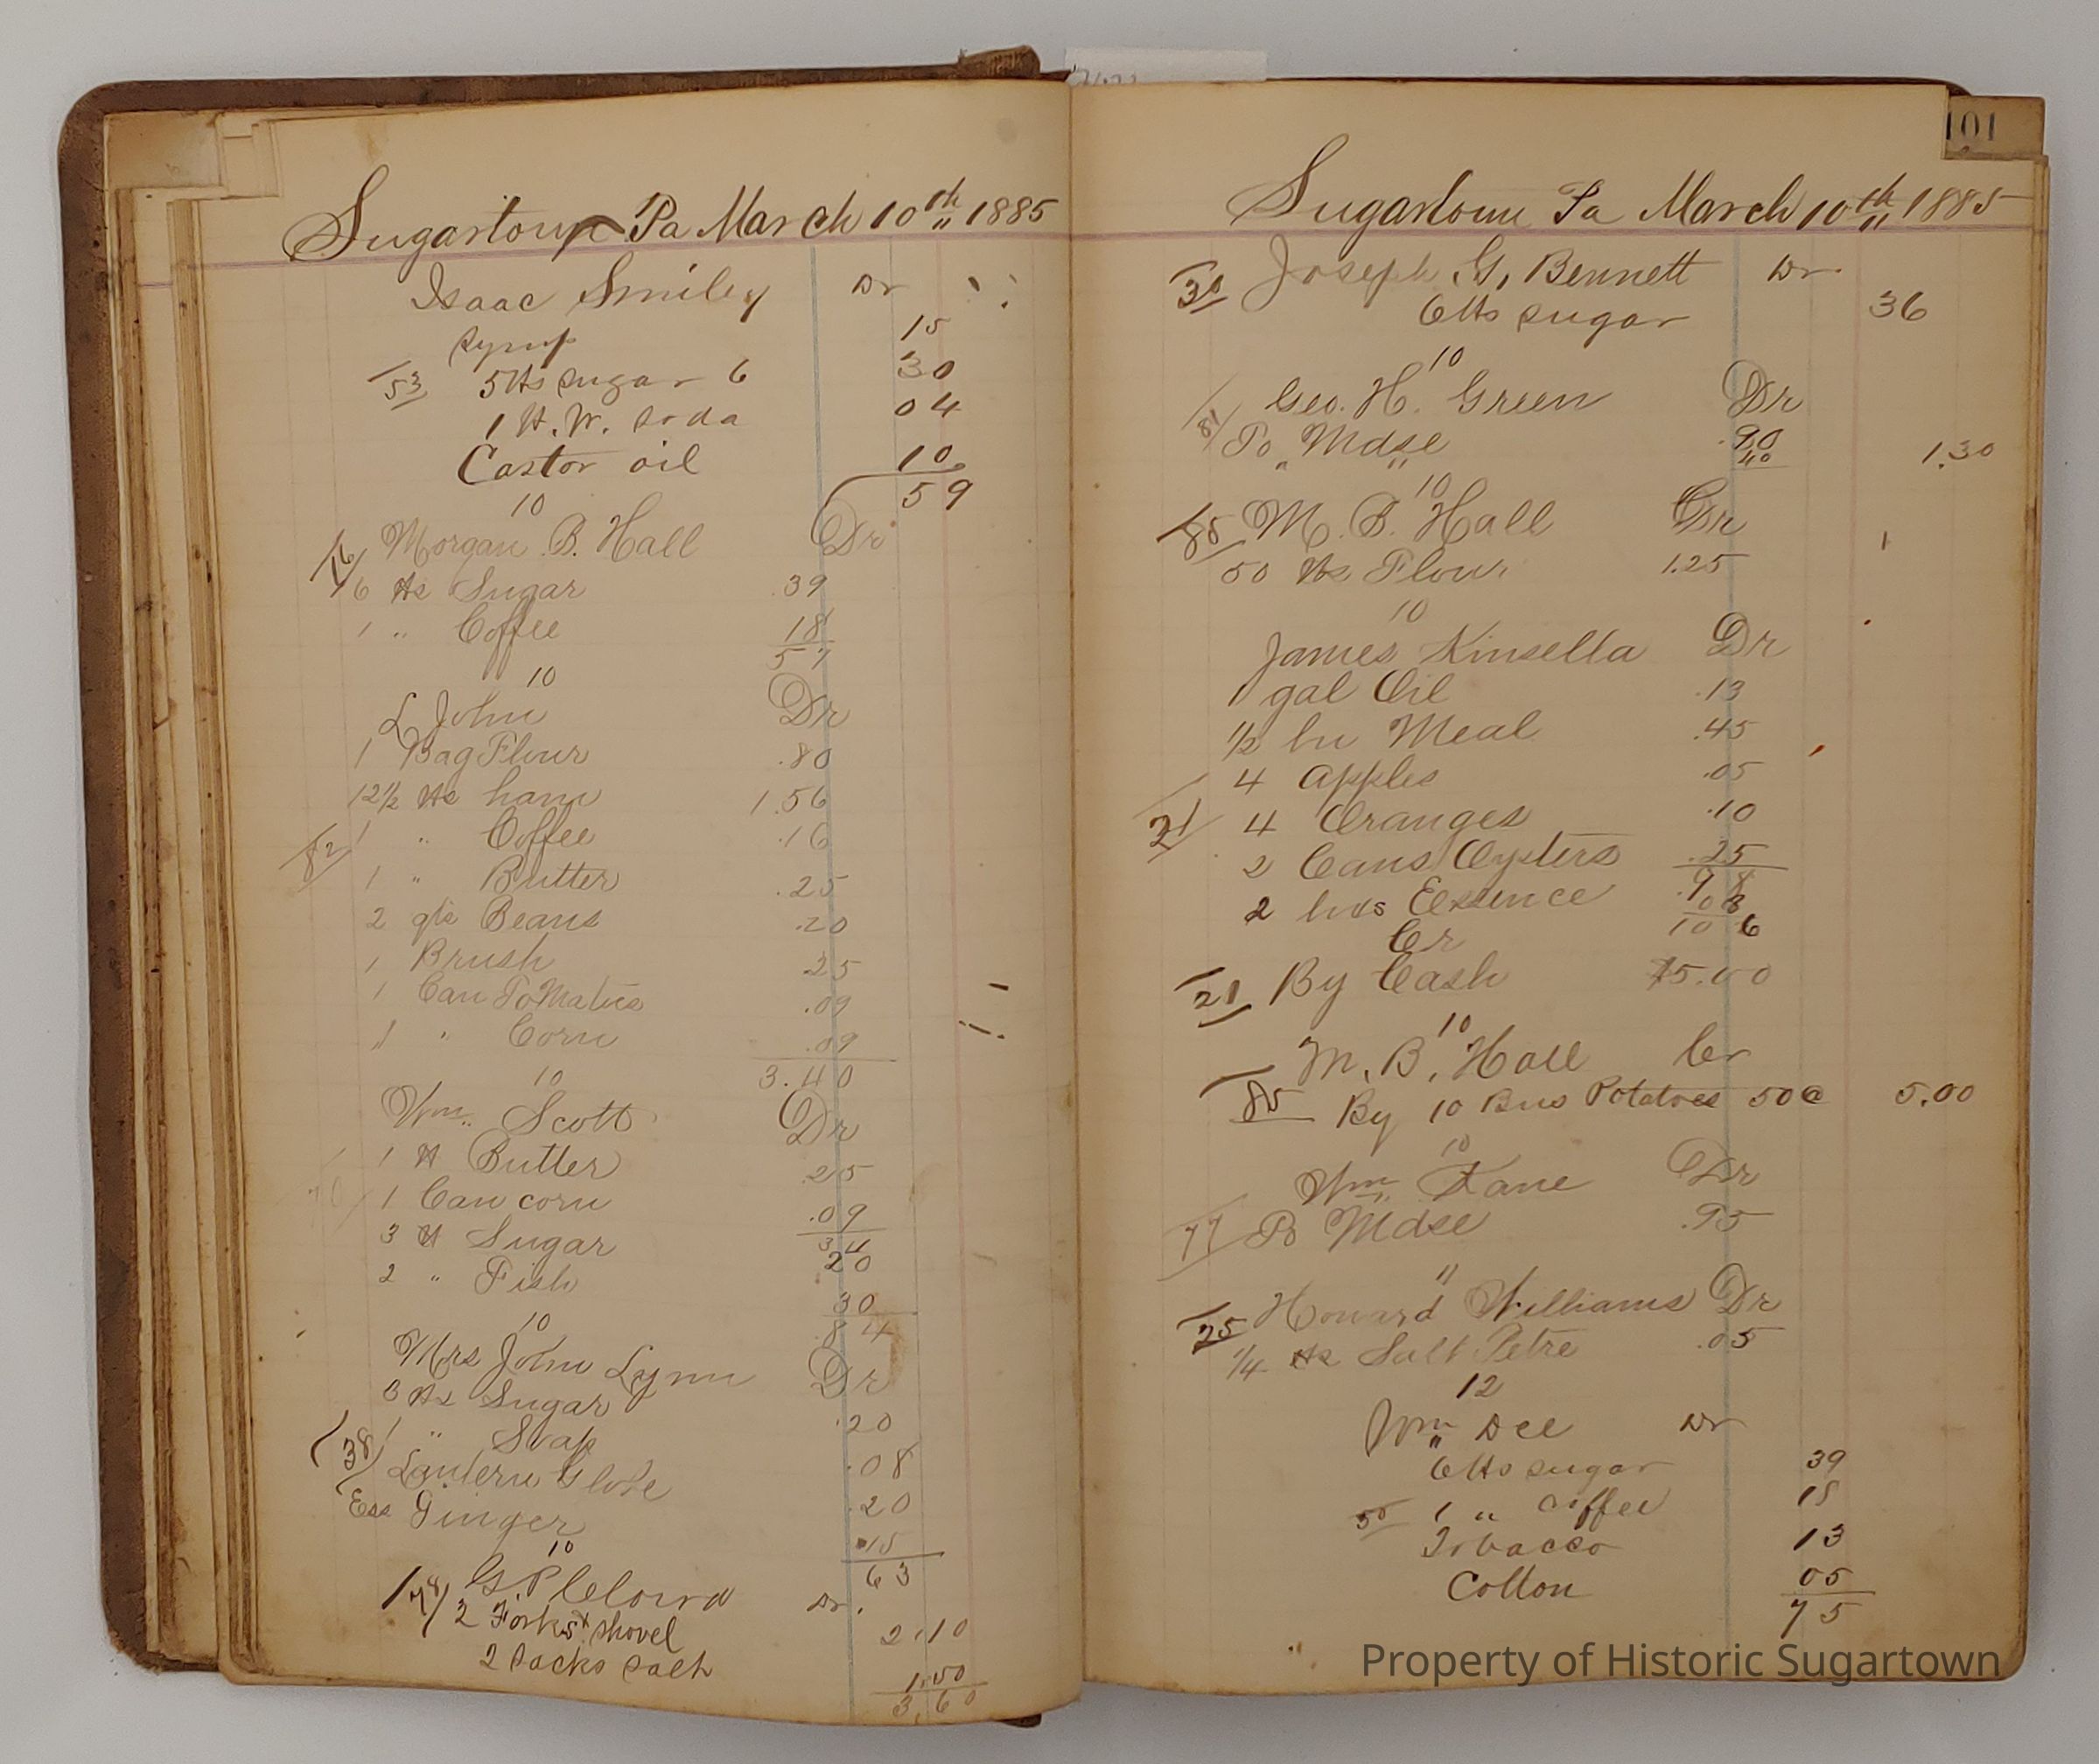 Sugartown Pa March 10th 1885
Isaac Smiley Dr
Syrup 15
53 5 lbs sugar 6 30
1 lb. W. Soda 04
Castor oil 10
59
10
16 Morgan B. Hall Dr
6 lbs Sugar .39
1 " Coffee 18
57
10
L John Dr
1 Bag Flour .80
12 1/2 lbs ham 1.56
82 1 " Coffee .16
1 " Butter .25
2 qts Beans .20
1 Brush 25
1 Can ToMatoes .09
1 " Corn .09
3.40
10
Wm. Scott Dr
1 lb Butter .25
70 1 Can corn .09
34
3 lb Sugar 20
2 " Fish 30
.84
10
Mrs John Lynn Dr
3 lbs Sugar .20
38 1 " Soap .08
Lantern Globe .20
Ess Ginger .15
63
10
78 G. P. Cloud Dr.
2 Forks & shovel 2.10
2 Sacks salt 1.50
3.60
101
Sugartown Pa March 10th 1885
30 Joseph G. Bennett Dr
6 lbs sugar 36
10
81 Geo. H. Green Dr
To Mdse .90
" " 40 1.30
10
85 M. B. Hall Dr
50 lbs Flour 1.25
10
James Kinsella Dr
1 gal Oil .13
1/2 bu Meal .45
4 apples .05
21 4 Oranges .10
2 Cans Oysters .25
.98
2 bxs Essence 08
1 0 6
Cr
21 By Cash 5.00
10
M. B. Hall Cr
85 By 10 Bus Potatoes 50c 5.00
10
Wm Kane Dr
77 To Mdse .95
11
25 Howard Williams Dr
1/4 lbs Salt Petre .05
12
Wm Dee Dr
6 lbs sugar 39
50 1 " coffee 18
Tobacco 13
Cotton 05
75
Property of Historic Sugartown